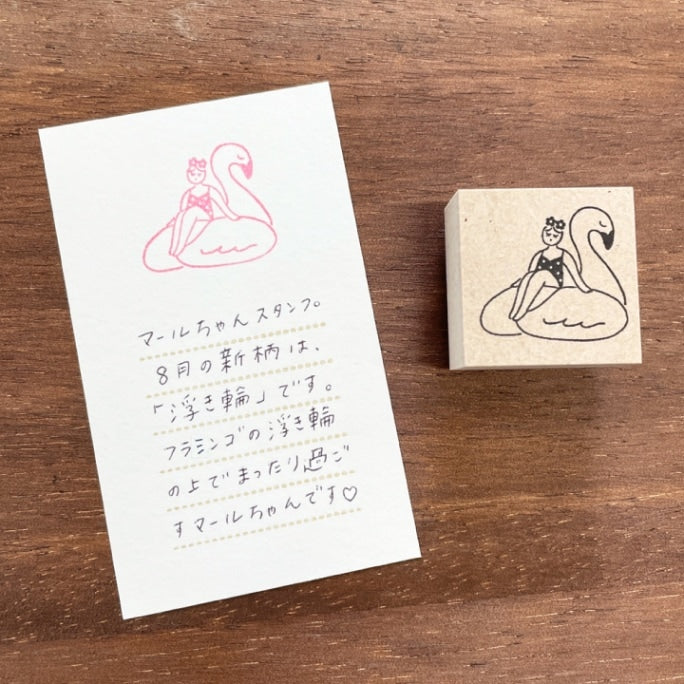 マールちゃんスタンプ。
8月の新柄は、
「浮き輪」です。
フラミンゴの浮き輪
の上でまったり過ご
すマールちゃんです♡